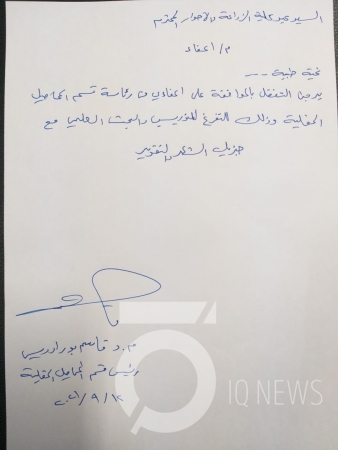 السيد عميد كلية الزراعة والاهوار المحترم
م/ اعفاء
تحية طيبة ---
يرجى التفضل بالموافقة على اعفائي من رئاسة قسم المحاصيل
الحقلية وذلك للتفرغ للتدريس والبحث العلمي مع
جزيل الشكر والتقدير
م.د قاسم
رئيس قسم المحاصيل الحقلية
IQ NEWS